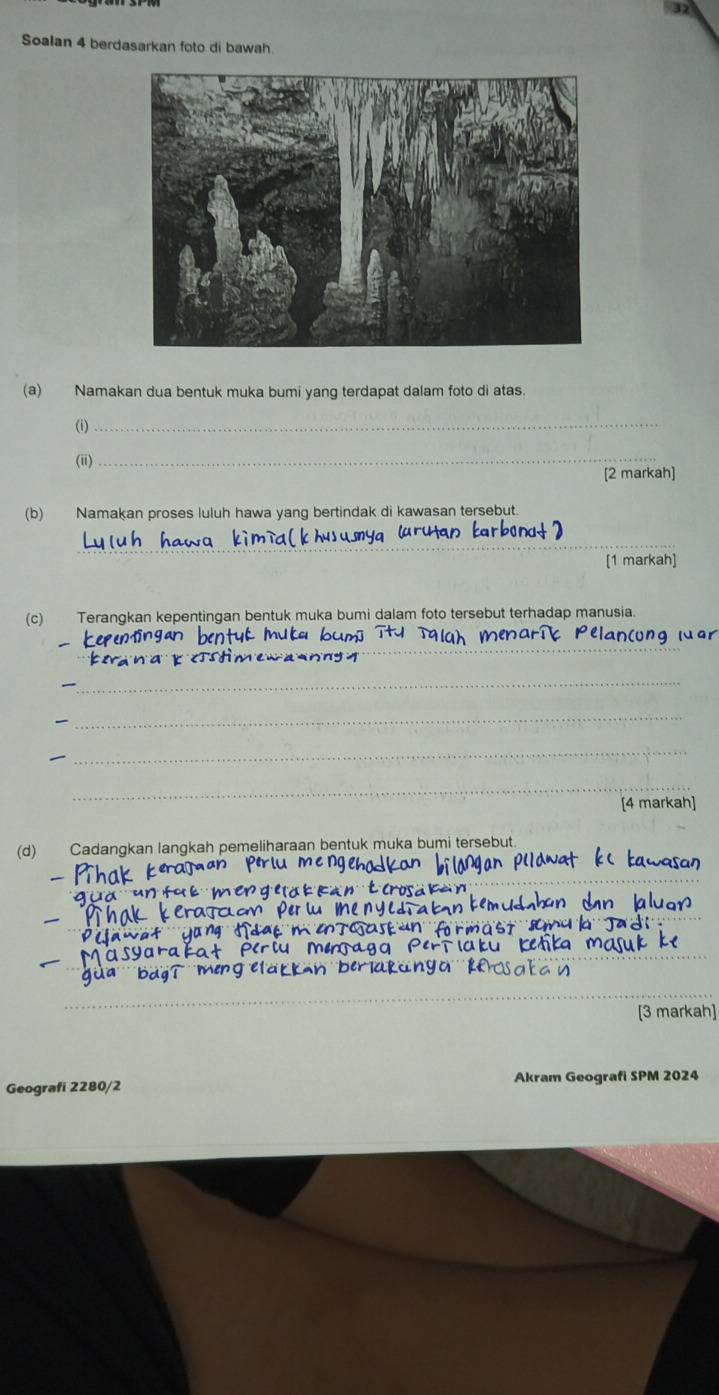 32
Soalan 4 berdasarkan foto di bawah.
(a) Namakan dua bentuk muka bumi yang terdapat dalam foto di atas.
(i)
(ii)
[2 markah]
(b) Namakan proses luluh hawa yang bertindak di kawasan tersebut.
Luluh hawa kimia (khususnya larutan karbonat)
[1 markah]
(c) Terangkan kepentingan bentuk muka bumi dalam foto tersebut terhadap manusia.
- kepentingan bentuk muka bumi itu ialah menarik pelancong luar
kerana
-
-
-
[4 markah]
(d) Cadangkan langkah pemeliharaan bentuk muka bumi tersebut.
- Pihak kerajaan perlu mengehadkan bilangan pelawat ke kawasan
gua untuk mengelakkan kerosakan
- Pihak kerajaan perlu menyediakan kemudahan dan laluan
pelawat yang tidak menjejaskan formasi semula jadi.
- Masyarakat perlu menjaga perilaku ketika masuk ke
gua bagi mengelakkan berlakunya kerosakan
[3 markah]
Geografi 2280/2
Akram Geografi SPM 2024